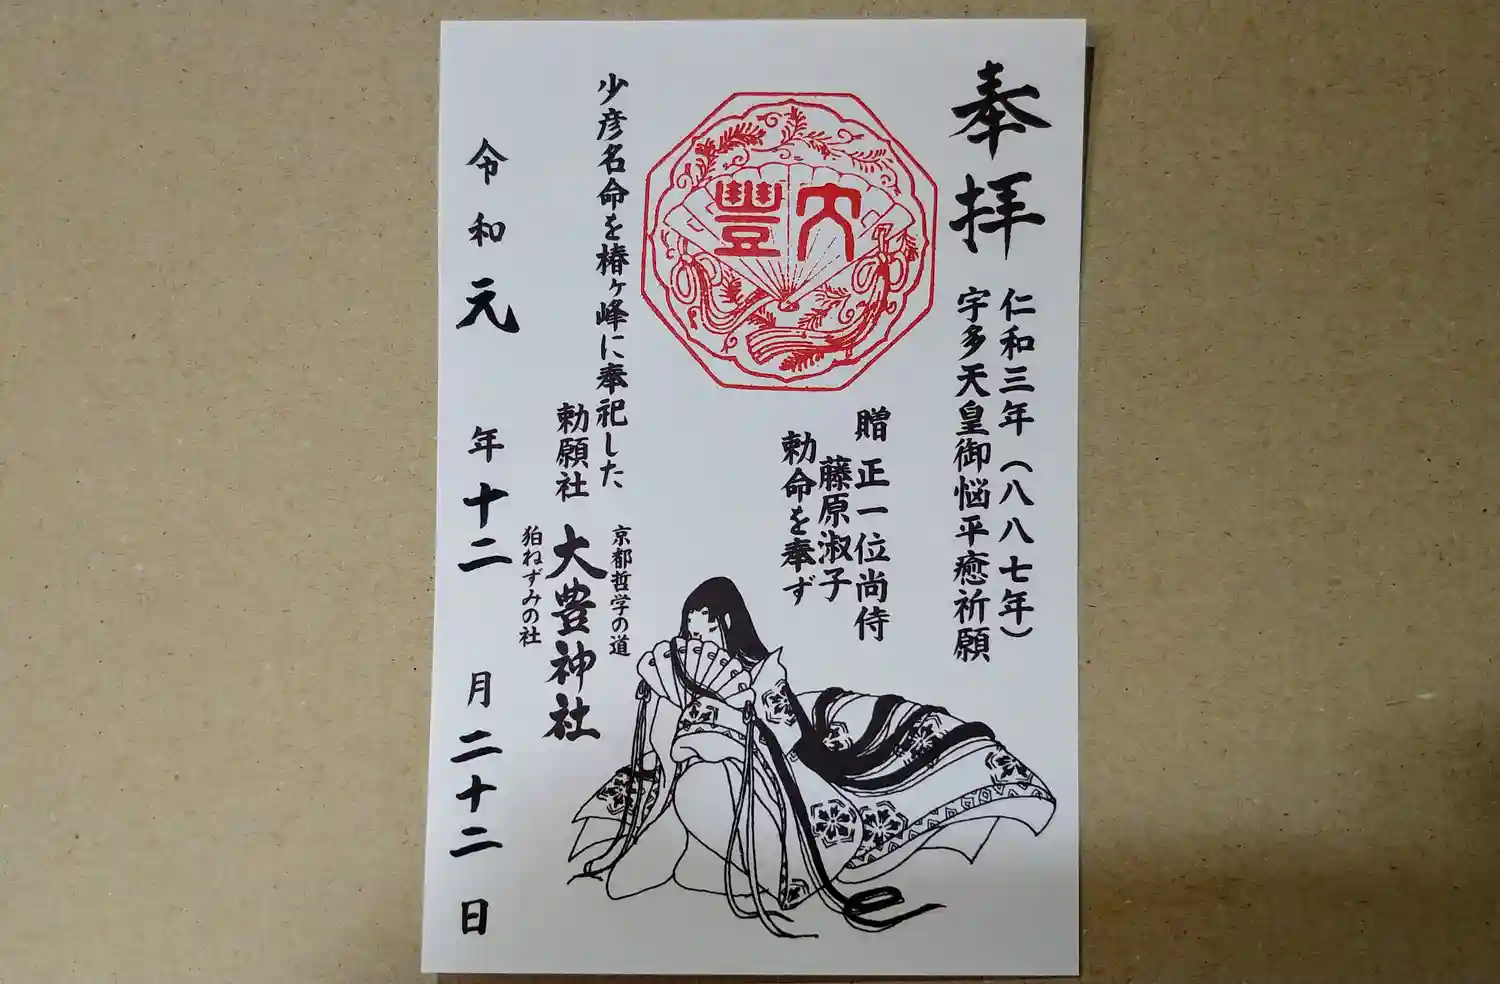 奉拝
仁和三年(八八七年)
宇多天皇御悩平癒祈願
贈 正一位尚侍
藤原淑子
勅命を奉ず
大豐
少彦名命を椿ヶ峰に奉祀した
勅願社
京都哲学の道
大豊神社
狛ねずみの社
令和元年十二月二十二日